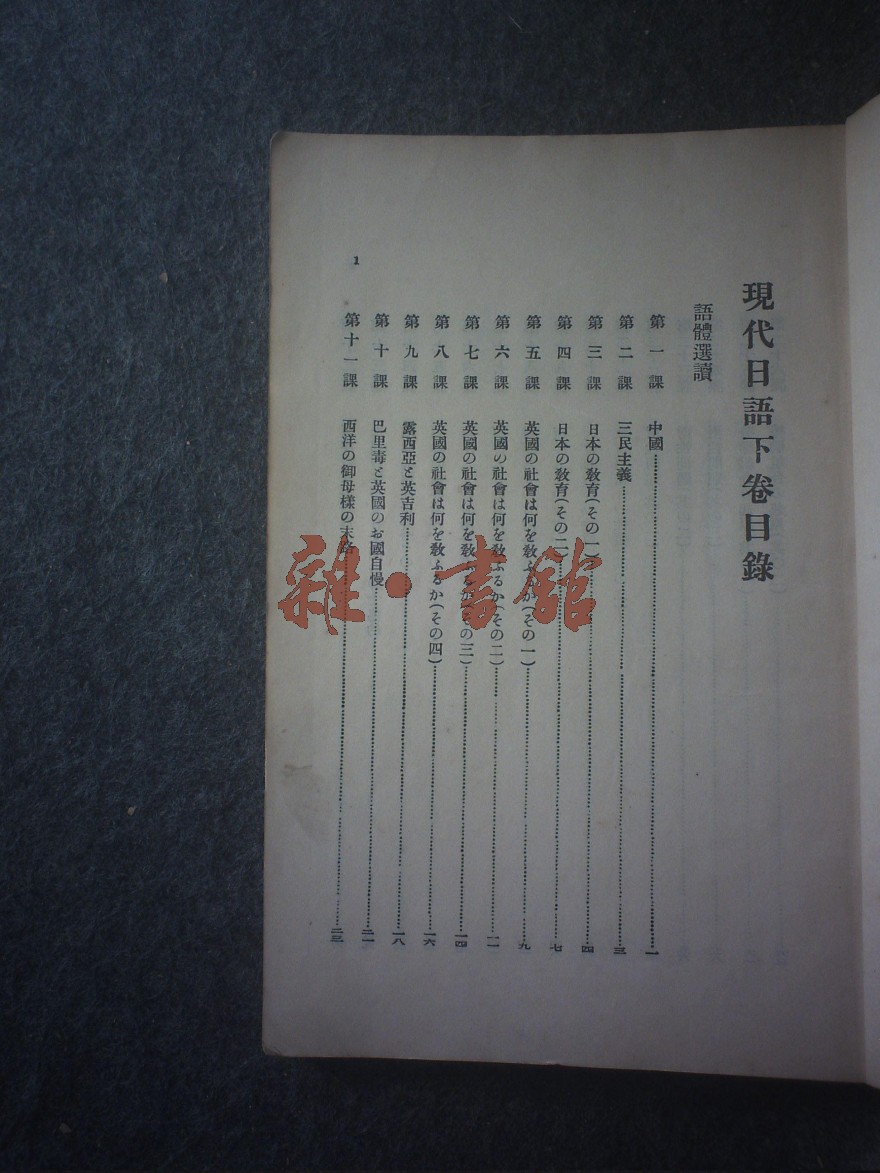 現代日語下卷目錄
語體選讀
第一課 中國 一
第二課 三民主義 三
第三課 日本の教育(その一) 四
第四課 日本の教育(その二) 七
第五課 英國の社會は何を教ふるか(その一) 九
第六課 英國の社會は何を教ふるか(その二) 一一
第七課 英國の社會は何を教ふるか(その三) 一四
第八課 英國の社會は何を教ふるか(その四) 一六
第九課 露西亞と英吉利 一八
第十課 巴里毒と英國のお國自慢 二一
第十一課 西洋の御母樣の末路 二三
1
雜·書館